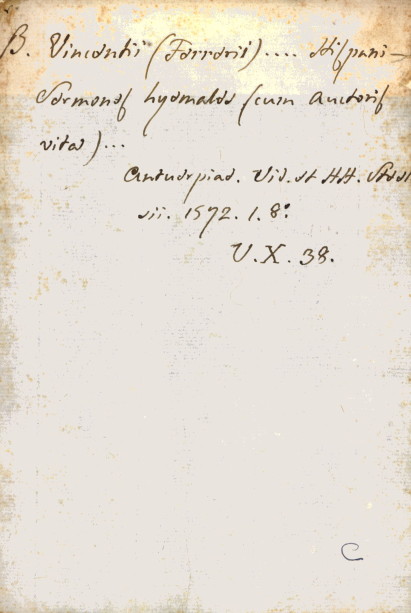 B. Vincentii (Ferrerii) .... Hispani-
Sermones hyemales (cum Auctoris
vitae) ...
Antuerpiae. Vid. et HH. Stee
sii. 1572. 1. 8º.
V. X. 38.
C